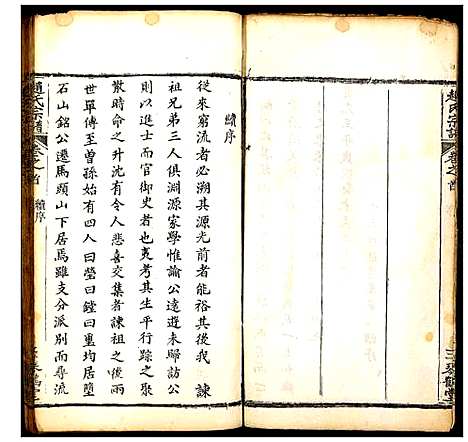 趙氏宗譜
卷之首
三琴鶴堂
續序
從來窮流者必溯其源光前者能裕其後我 諫
祖兄弟三人俱淵源家學惟諭公遠遊未歸訪公
則以進士而官御史者也夷考其生平行踪之聚
散時命之升沈有令人悲喜交集者諫祖之後兩
世單傳至曾孫始有四人曰瑩曰鏜曰里均居塱
石山銘公遷馬頭山下居焉雖支分派別而尋流
趙氏宗譜
卷之首
續序
琴鶴堂